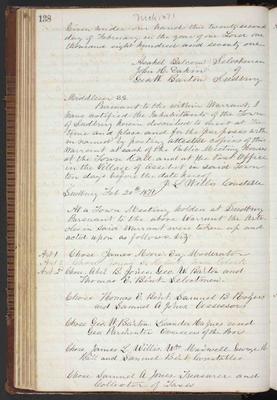 138
Given under our hands this twenty second
day of February in the year of our Lord one
thousand eight hundred and seventy one.
Asahel Balcom Selectmen
John H. Dakin
Geo. W. Barton Sudbury
Middlesex SS.
Pursuant to the within Warrant, I
have notified the Inhabitants of the Town
of Sudbury herein described to meet at the
time and place and for the purposes with-
in named by posting attested copies of this
Warrant at each of the Public Meeting Houses
at the Town Hall and at the Post Office
in the Village of in said Town
ten days before the date hereof.
J. L. Willis Constable
Sudbury Feb. 1871
At a Town Meeting holden at Sudbury
Pursuant to the above Warrant the Arti-
cles in said Warrant were taken up and
acted upon as follows viz:
Art 1 Chose James Moore Esq Moderator
Art 2 Chose
Art 3 Chose Abel B. Jones Geo. W. Barton and
Thomas P. Hunt Selectmen.
Chose Thomas P. Hunt Samuel B. Rogers
and Samuel A Jones Assessors
Chose Geo W. Barton Leander Haynes and
Geo Parmenter Overseers of the Poor
Chose James L. Willis Wm Maxwell George
and Samuel Constables
Chose Samuel A. Jones Treasurer and
Collector of Taxes